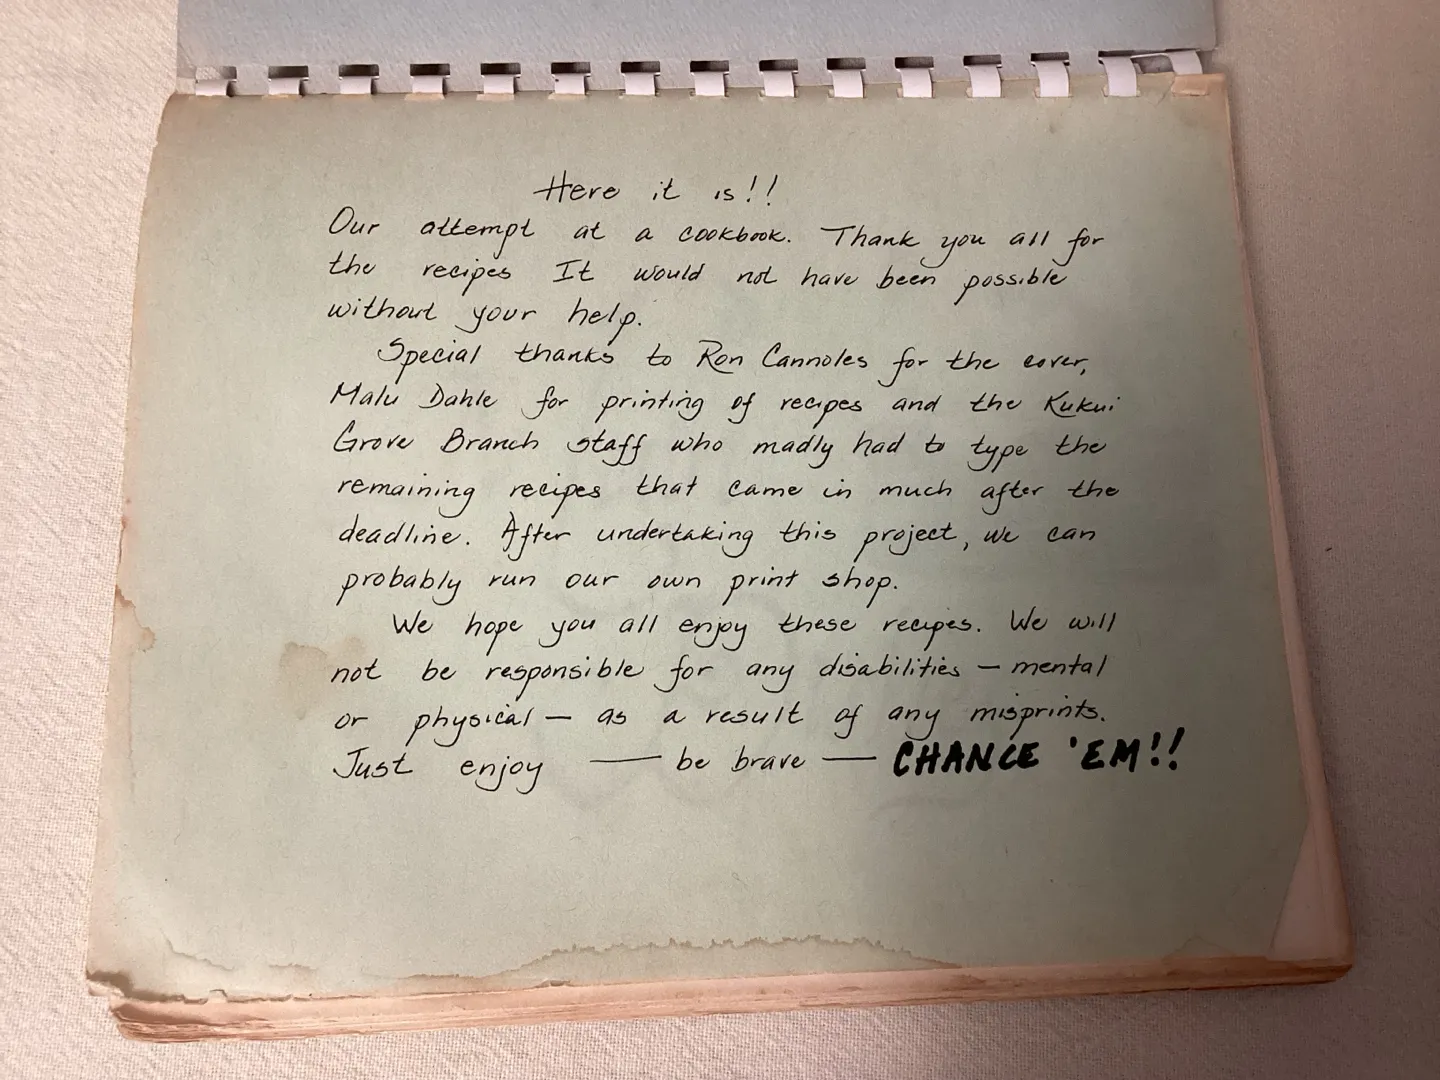 Here it is!!
Our attempt at a cookbook. Thank you all for
the recipes It would not have been possible
without your help.
Special thanks to Ron Cannoles for the cover,
Malu Dahle for printing of recipes and the Kukui
Grove Branch staff who madly had to type the
remaining recipes that came in much after the
deadline. After undertaking this project, we can
probably run our own print shop.
We hope you all enjoy these recipes. We will
not be responsible for any disabilities — mental
or physical — as a result of any misprints.
Just enjoy — be brave — CHANCE 'EM!!